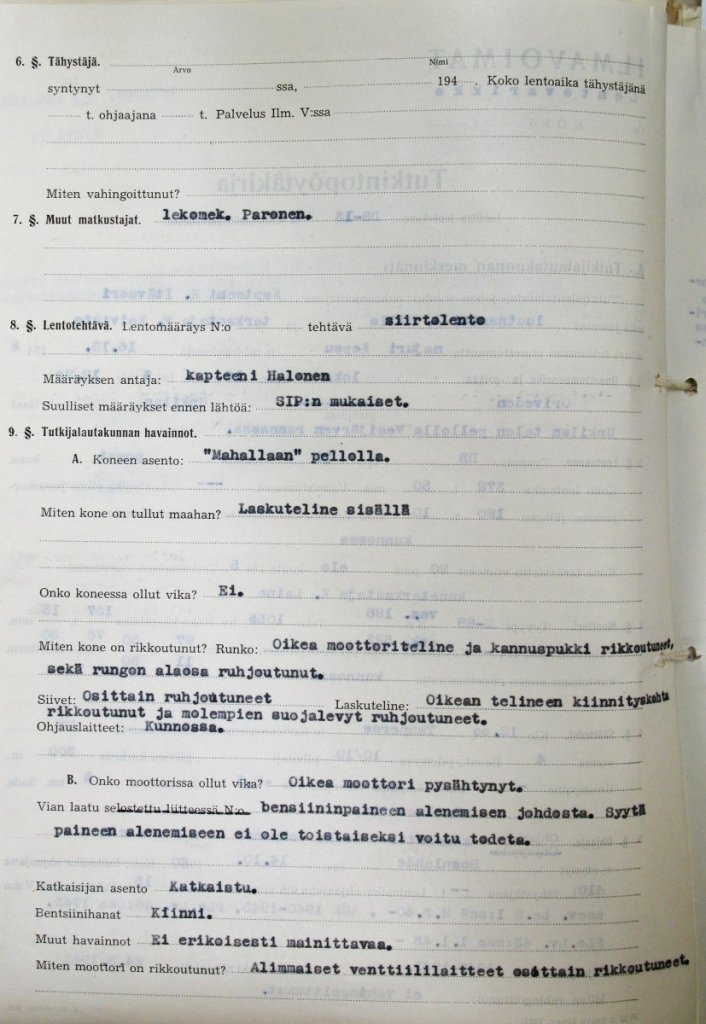 6. §. Tähystäjä.
Arvo Nimi
syntynyt ssa, 194 . Koko lentoaika tähystäjänä
t. ohjaajana t. Palvelus Ilm. V:ssa
Miten vahingoittunut?
7. §. Muut matkustajat. lekomek. Paronen.
8. §. Lentotehtävä. Lentomääräys N:o tehtävä siirtolento
Määräyksen antaja: kapteeni Halonen
Suulliset määräykset ennen lähtöä: SIP:n mukaiset.
9. §. Tutkijalautakunnan havainnot.
A. Koneen asento: "Mahallaan" pellolla.
Miten kone on tullut maahan? Laskuteline sisällä
Onko koneessa ollut vika? Ei.
Miten kone on rikkoutunut? Runko: Oikea moottoriteline ja kannuspukki rikkoutuneet,
sekä rungon alaosa ruhjoutunut.
Siivet: Osittain ruhjoutuneet Laskuteline: Oikean telineen kiinnityskohta
rikkoutunut ja molempien suojalevyt ruhjoutuneet.
Ohjauslaitteet: Kunnossa.
B. Onko moottorissa ollut vika? Oikea moottori pysähtynyt.
Vian laatu selostettu liitteessä N:o bensiininpaineen alenemisen johdosta. Syytä
paineen alenemiseen ei ole toistaiseksi voitu todeta.
Katkaisijan asento Katkaistu.
Bentsiinihanat Kiinni.
Muut havainnot Ei erikoisesti mainittavaa.
Miten moottori on rikkoutunut? Alimmaiset venttiililaitteet osittain rikkoutuneet.